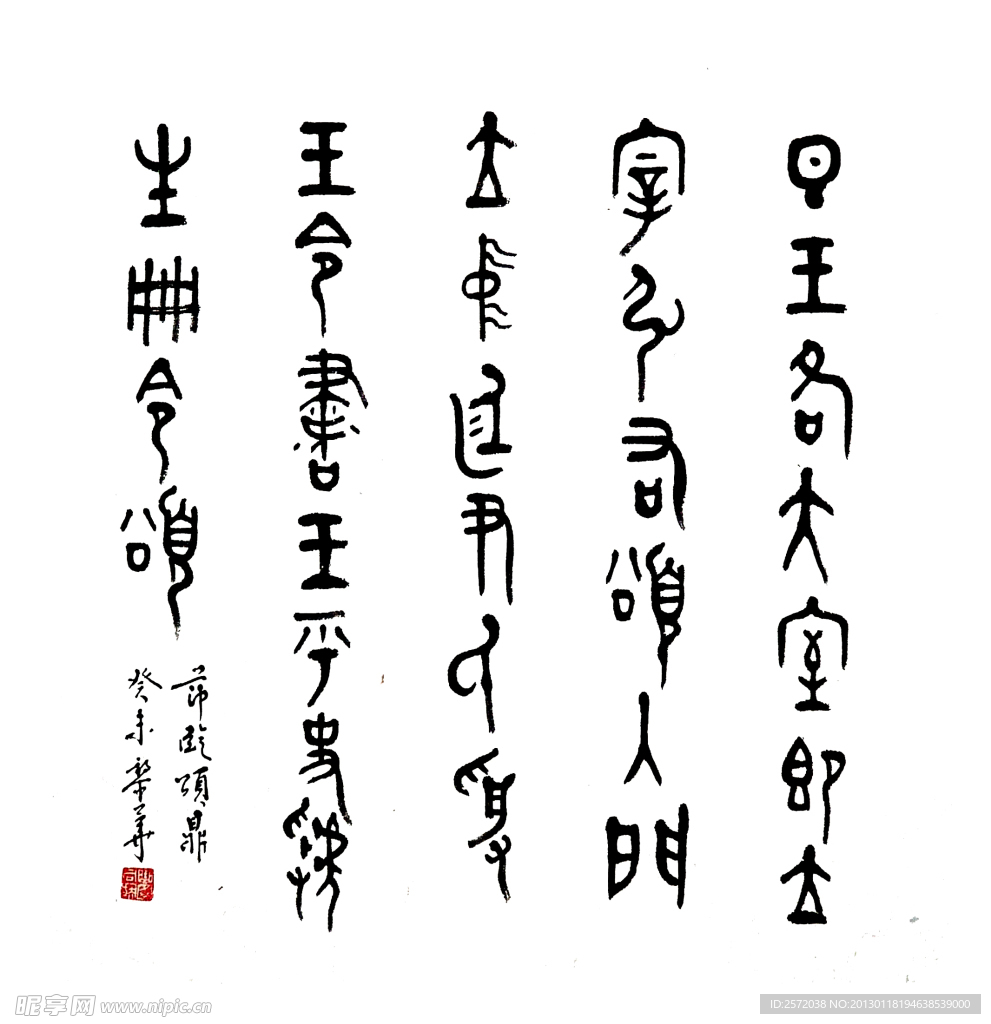 旦王各大室即立
宰弘右頌入門
立中廷尹氏受
王令書王乎史虢
生冊令頌
節臨頌鼎
癸未華
昵享网 www.nipic.cn
ID:2572038 NO:20130118194638539000